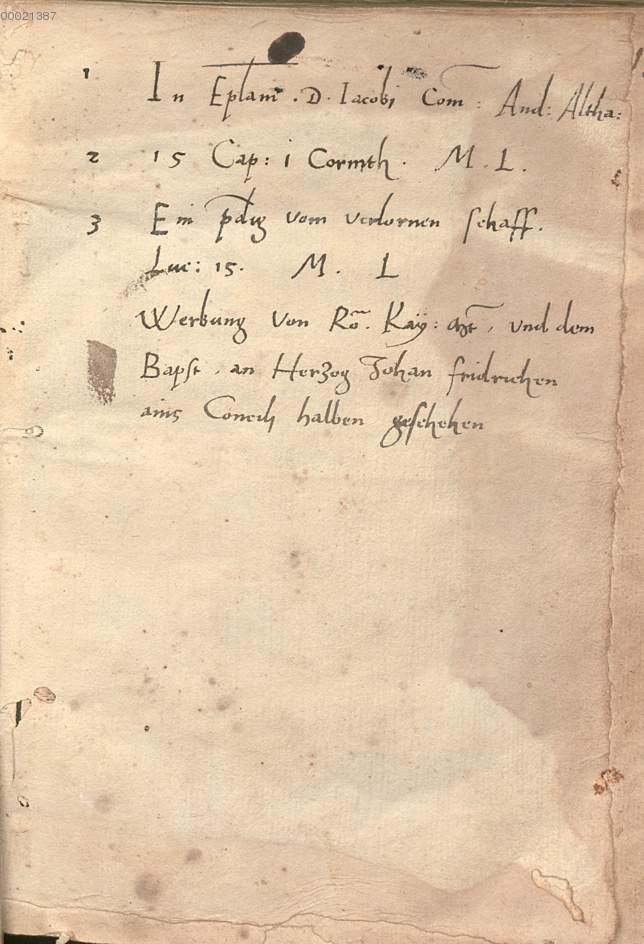 00021387
1 In Epl̄am . D. Iacobi Com̄ : And: Altha:
2 15 Cap: i Corinth. M. L.
3 Ein p̄dig vom verlornen schaff.
Luc: 15. M. L
Werbung von Rō. Kay: Mt̄, vnd dem
Bapst, an Herzog Johan fridrichen
ains Concili halben geschehen